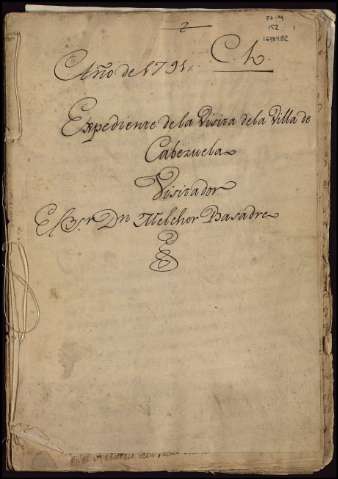 2
Año de 1791.
C. L.
152
Expediente de la Visita de la Villa de
Cabezuela
Visitador
El S.r Dn Melchor Basadre